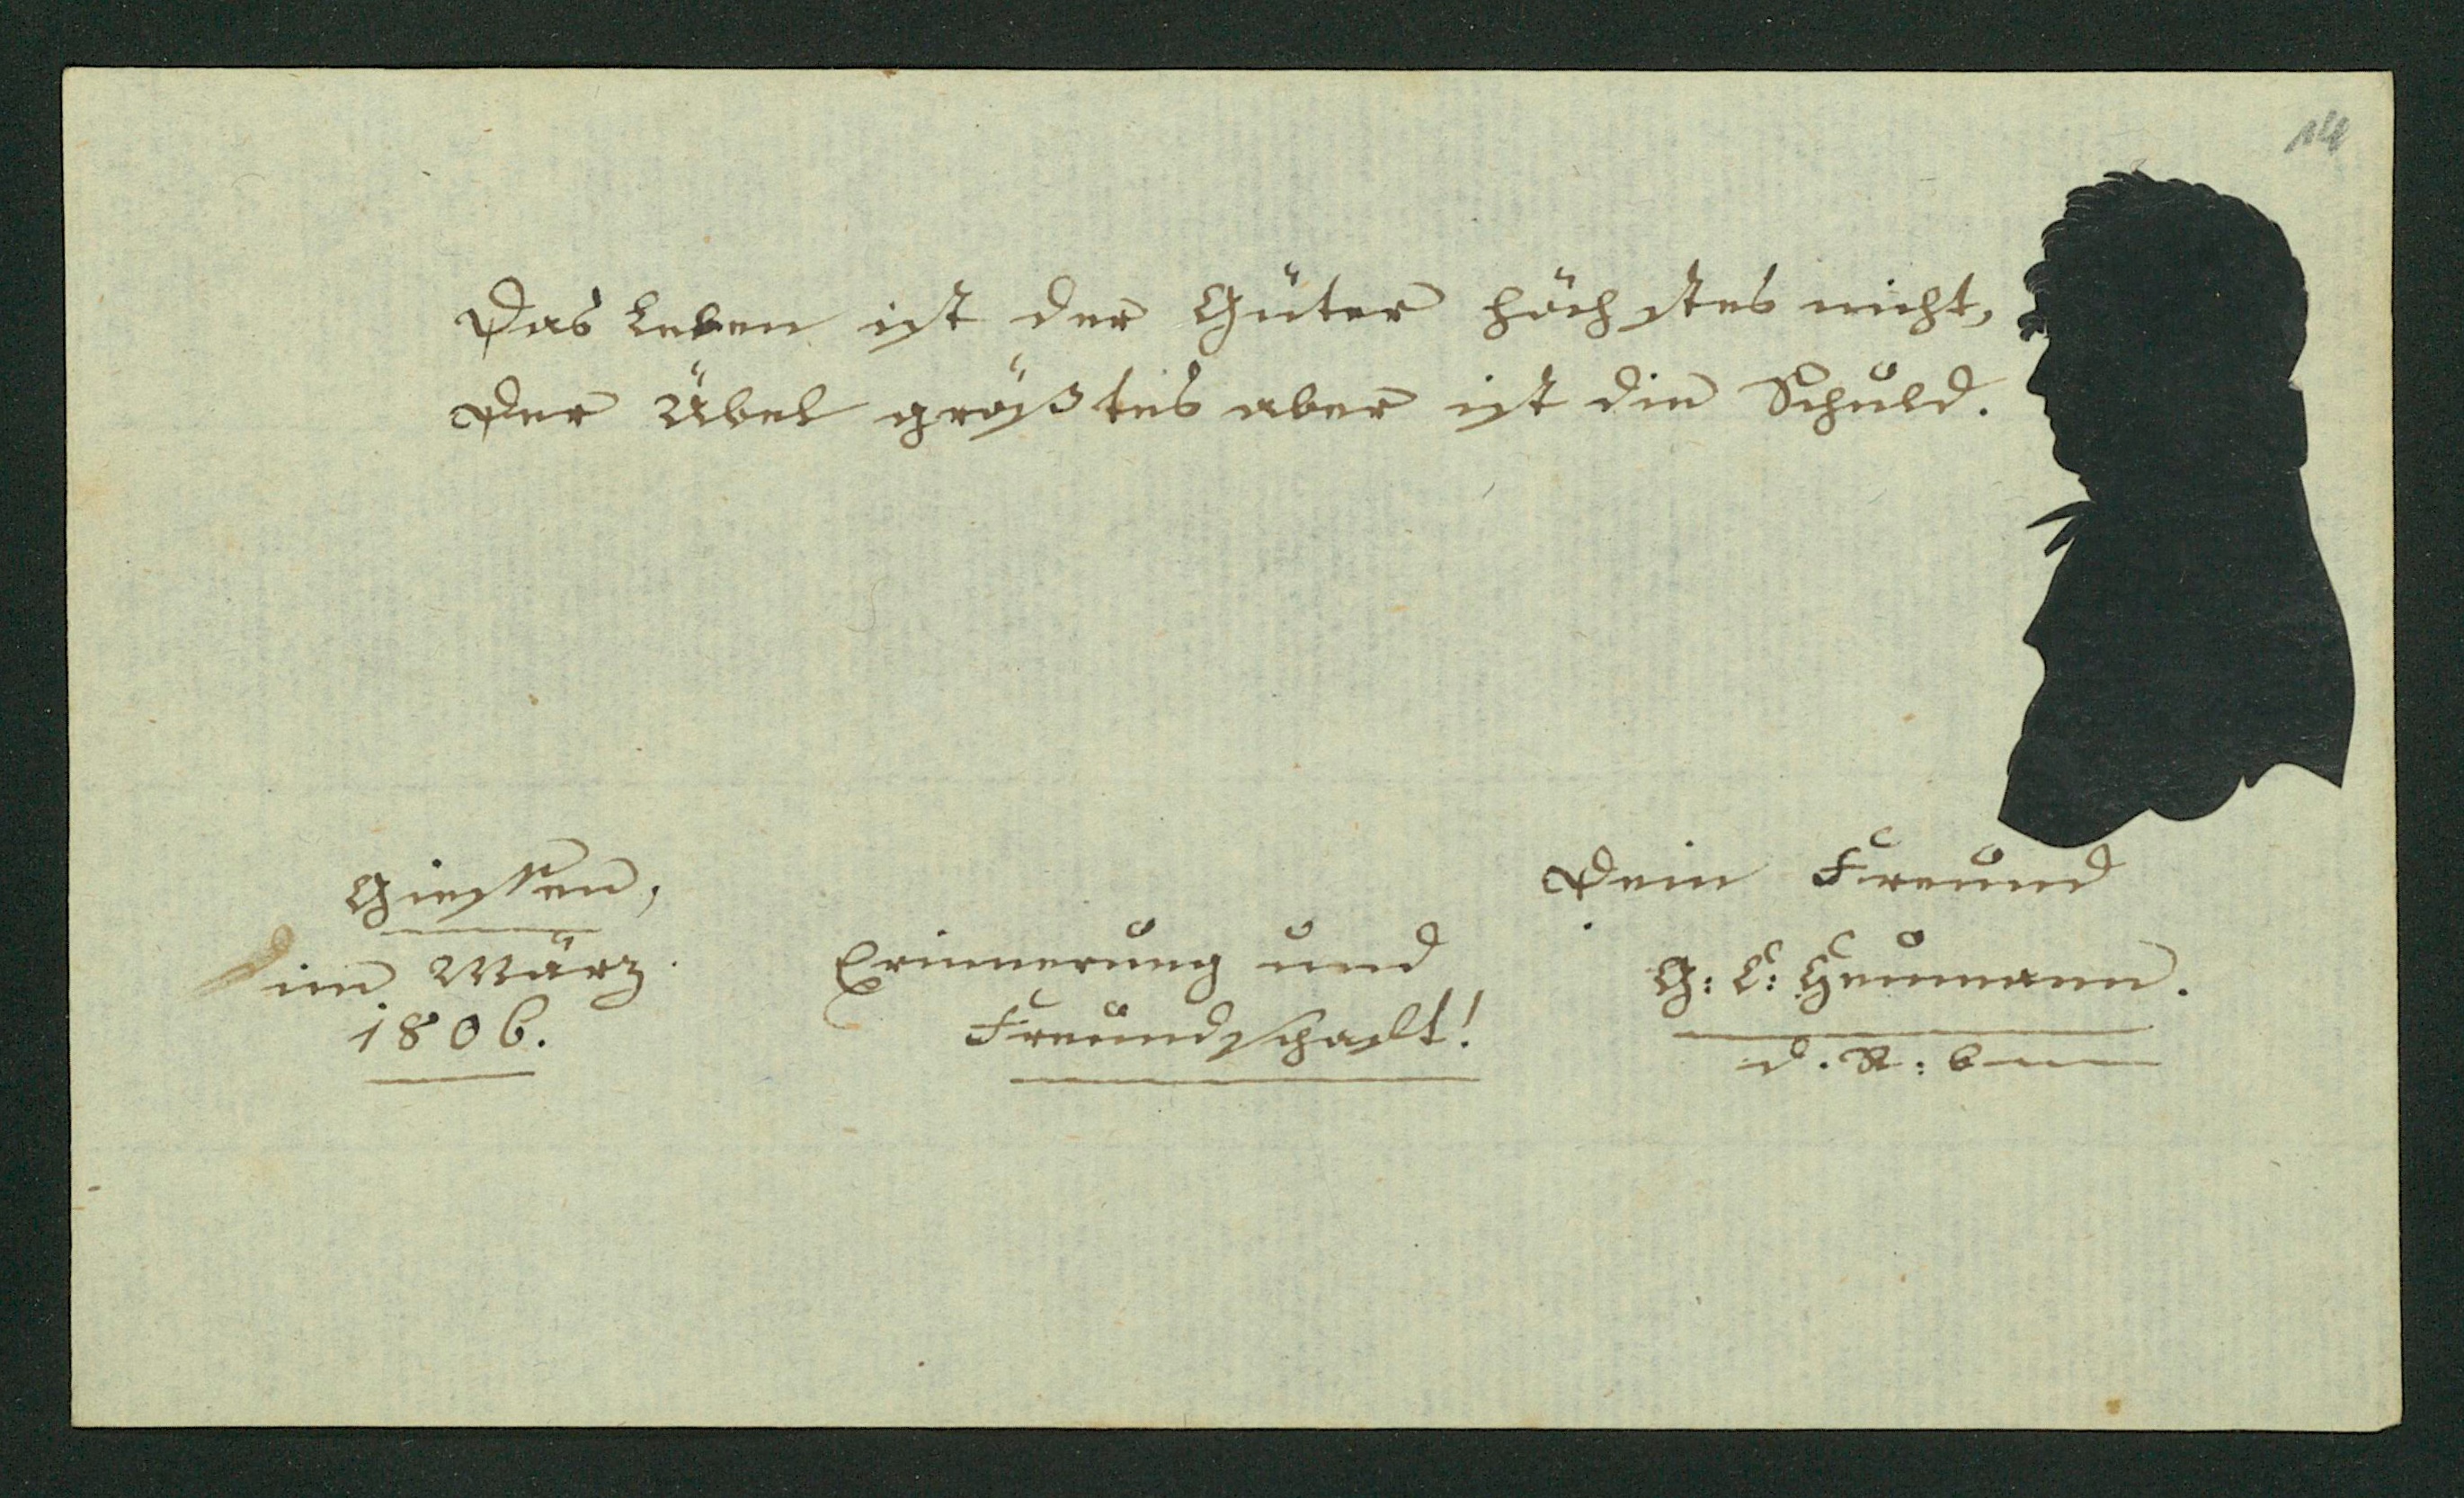 14
Das Leben ist der Güter höchstes nicht,
Der Übel größtes aber ist die Schuld.
Giessen,
im März
1806.
Erinnerung und
Freundschaft!
Dein Freund
G: L: Heumann.
d. R: